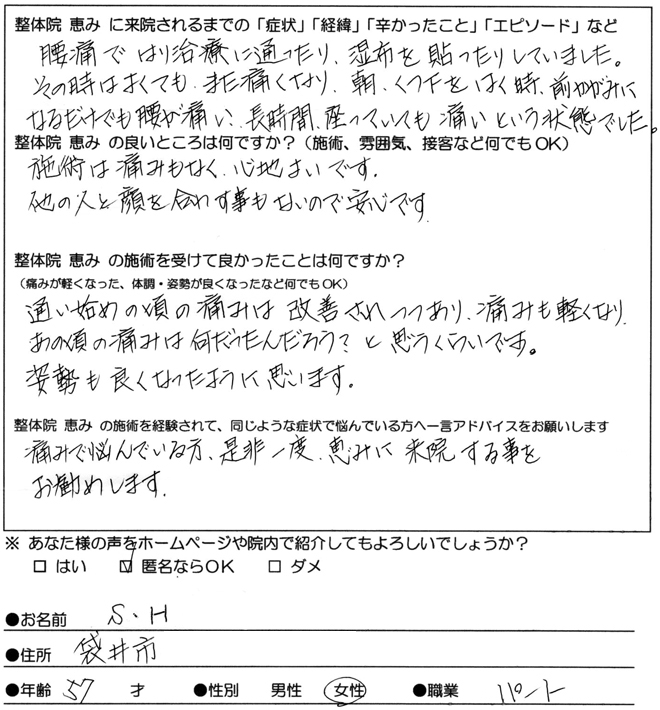 整体院 恵み に来院されるまでの「症状」「経緯」「辛かったこと」「エピソード」など
腰痛で はり治療に通ったり、湿布を貼ったりしていました。
その時はよくても、また痛くなり、朝、くつ下をはく時、前かがみに
なるだけでも腰が痛い、長時間、座っていても痛いという状態でした。
整体院 恵み の良いところは何ですか?(施術、雰囲気、接客など何でもOK)
施術は痛みもなく、心地よいです。
他の人と顔を合わす事もないので安心です
整体院 恵み の施術を受けて良かったことは何ですか?
(痛みが軽くなった、体調・姿勢が良くなったなど何でもOK)
通い始めの頃の痛みは改善されつつあり、痛みも軽くなり、
あの頃の痛みは何だったんだろう?と思うくらいです。
姿勢も良くなったように思います。
整体院 恵み の施術を経験されて、同じような症状で悩んでいる方へ一言アドバイスをお願いします
痛みで悩んでいる方、是非一度、恵みに来院する事を
お勧めします。
※ あなた様の声をホームページや院内で紹介してもよろしいでしょうか?
□ はい ☑ 匿名ならOK □ ダメ
●お名前 S・H
●住所 袋井市
●年齢 57 才 ●性別 男性 女性 ●職業 パート